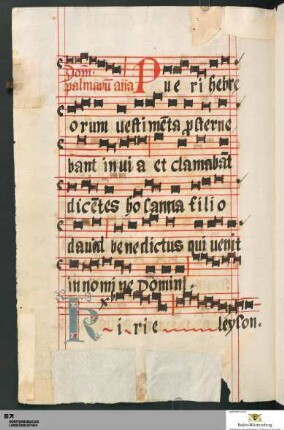 Dom
palmarū aña Pueri hebre
orum uestimēta psterne
bant in uia et clamabāt
dicētes hosanna filio
dauid benedictus qui uenit
in nomine Domini.
Kirie leyson.
WÜRTTEMBERGISCHE
LANDESBIBLIOTHEK
Baden-Württemberg